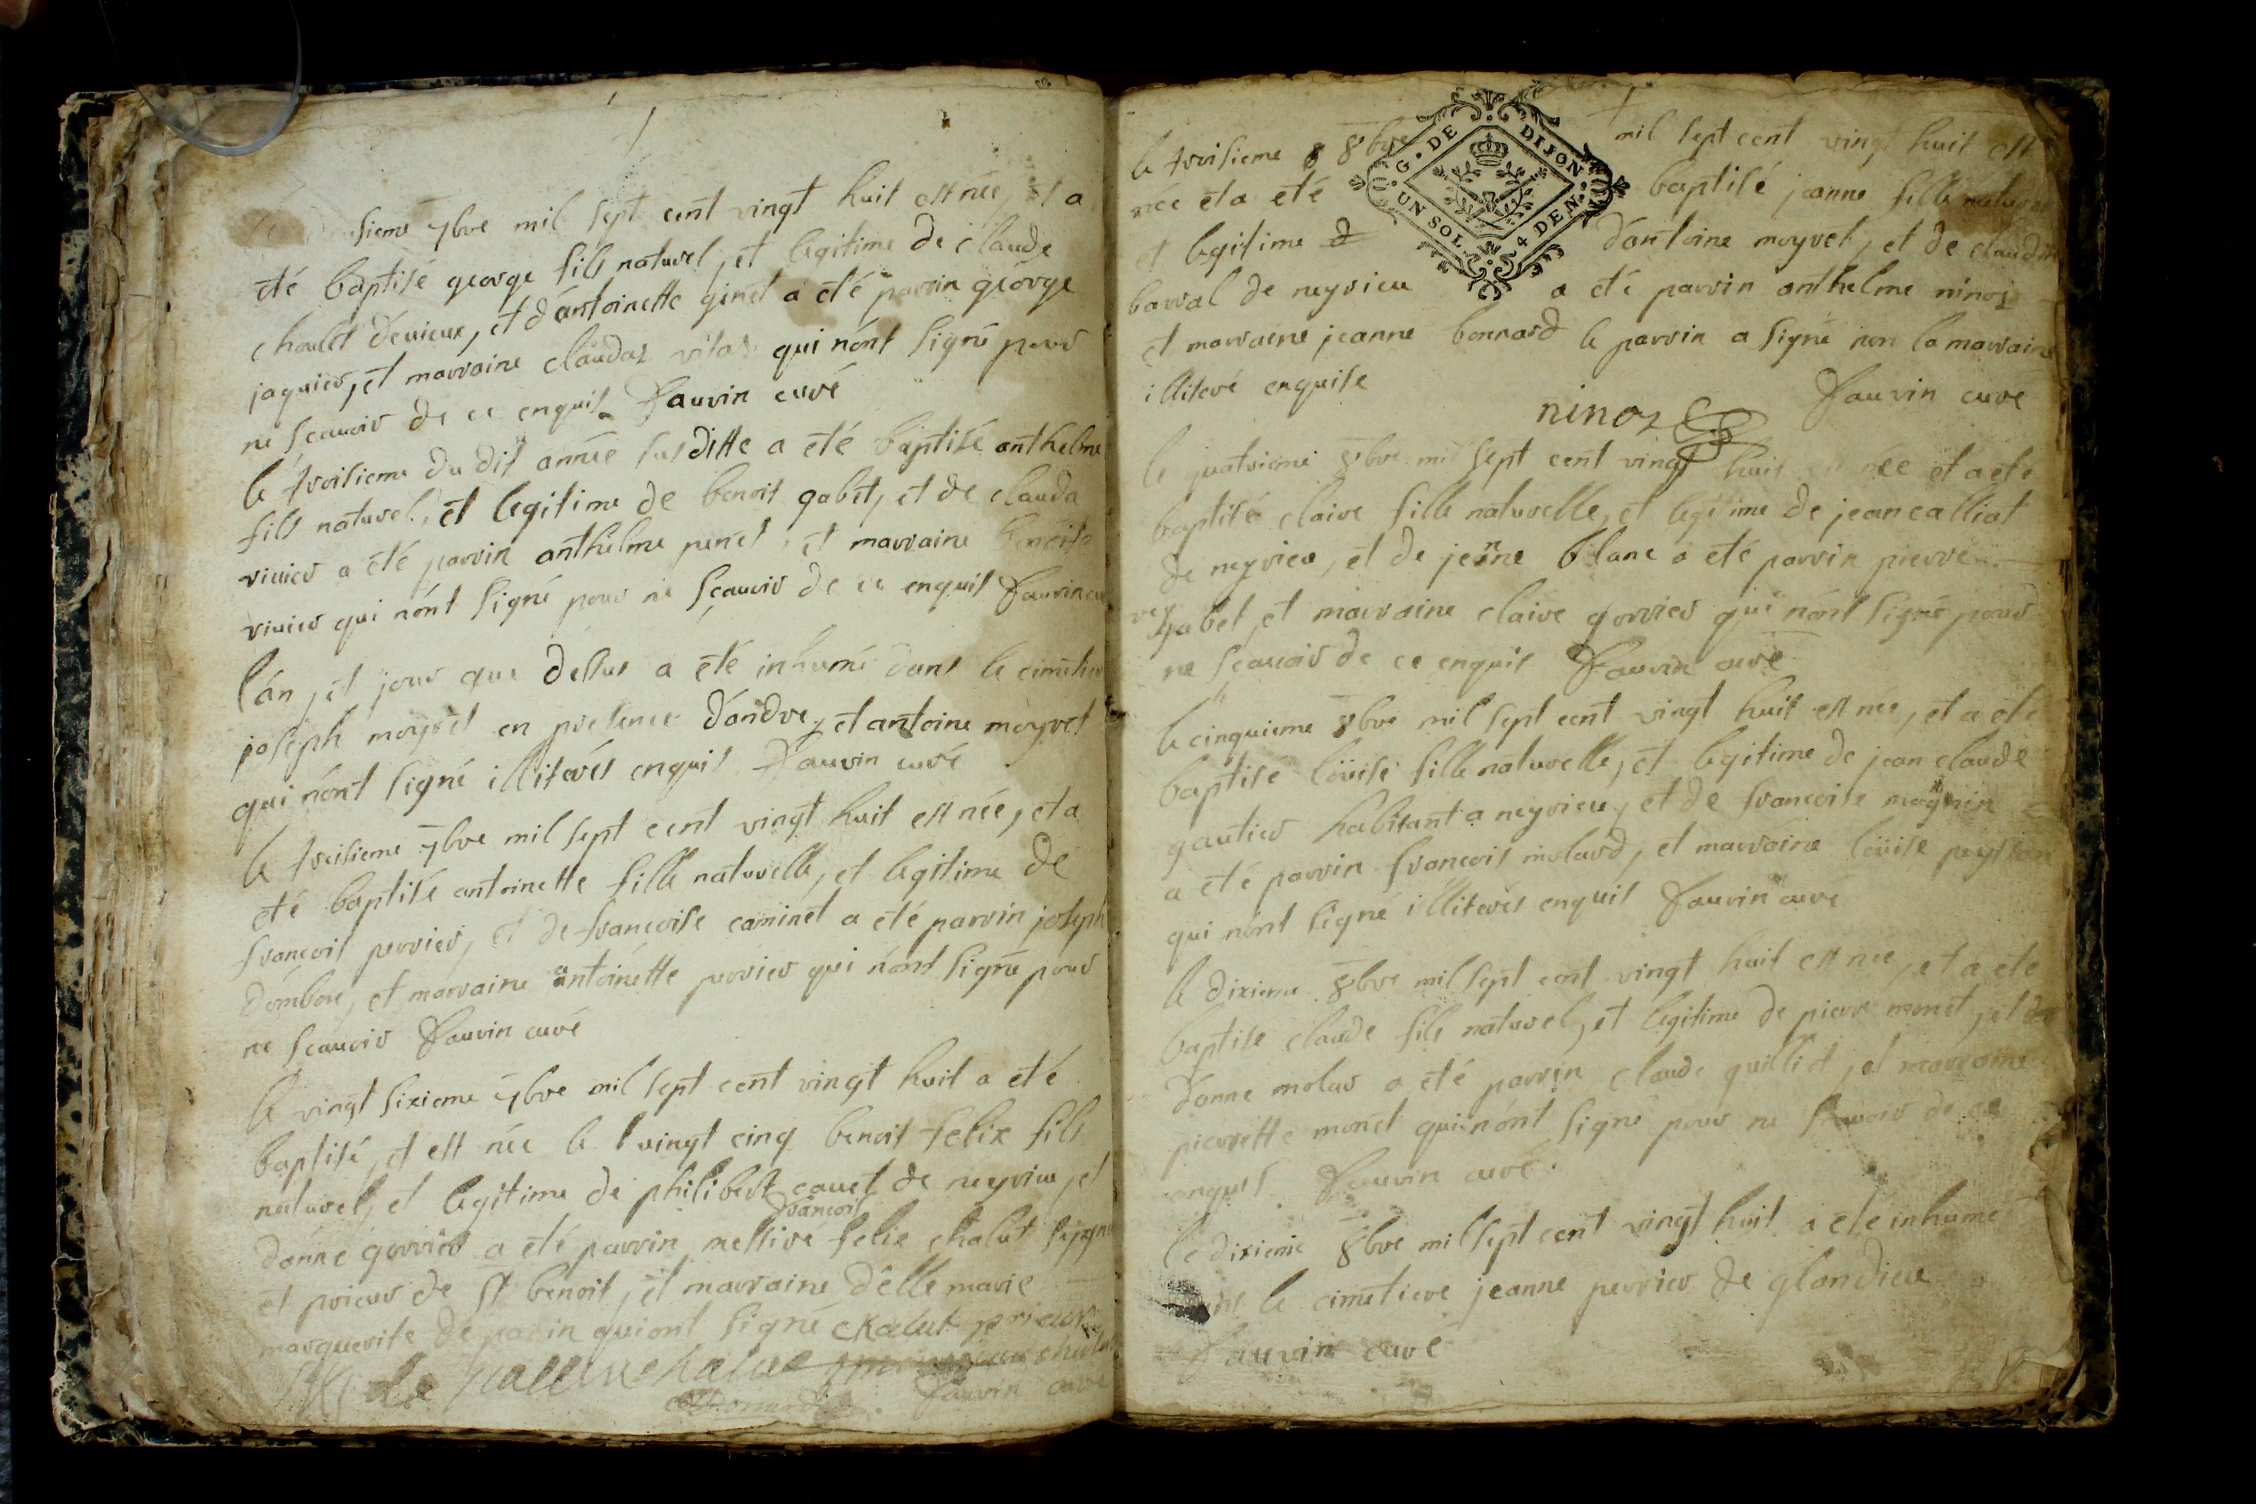 sieme 7bre mil sept cent vingt huit est née, et a
été baptisé george fils naturel, et legitime de claude
chalet d'evieux, et d'antoinette ginet a été parrin george
jaquier, et marraine claudaz vitaz qui n'ont signé pour
ne sçauoir de ce enquis fauvin curé
le troisieme du dit année susditte a été baptisé anthelme
fils naturel, et legitime de benoit gabet, et de clauda
vivier a été parrin anthelme penet, et marraine benoite
vivier qui n'ont signé pour ne sçauoir de ce enquis fauvin cu
l'an, et jour que dessus a été inhumé dans le cimetier
joseph moyret en presence d'andre, et antoine moyret
qui n'ont signé illiterés enquis fauvin curé
le treisieme 7bre mil sept cent vingt huit est née, et a
été baptisé antoinette fille naturelle, et legitime de
francois perrier, et de francoise caminet a été parrin joseph
dombey, et marraine antoinette perrier qui n'ont signé pour
ne sçauoir fauvin curé
le vingt sixieme 7bre mil sept cent vingt huit a été
baptisé, et est née le vingt cinq benoit felix fils
naturel, et legitime de philibert cauet de neyrieu, et
francois
d'anne gorrier a été parrin messire felix chalut
et prieur de st benoit, et marraine d'elle marie
marguerite de qui ont signé chalut prieur
de
fauvin curé
G. DE DIJON
UN SOL. 4 DEN.
le troisieme 8bre mil sept cent vingt huit est
née et a été baptisé jeanne fille natur
et legitime d d'antoine moyret, et de claudin
barral de neyrieu a été parrin anthelme ninoz
et marraine jeanne bonnard le parrin a signé non la marraine
illiteré enquise fauvin curé
ninoz
le quatrieme 8bre mil sept cent vingt huit est née et a été
baptisé claire fille naturelle, et legitime de jean calliat
de neyrieu, et de jeanne blanc a été parrin pierre
rey
gabet, et marraine claire gorrier qui n'ont signé pour
ne sçauoir de ce enquis fauvin curé
le cinquieme 8bre mil sept cent vingt huit est née, et a été
baptisé loüise fille naturelle, et legitime de jean claude
gautier habitant a neyrieu, et de francoise magnin
a été parrin francois molard, et marraine loüise peysson
qui n'ont signé illiterés enquis fauvin curé
le dixieme 8bre mil sept cent vingt huit est née, et a été
baptisé claude fils naturel, et legitime de pierre monet, et de
d'anne molar a été parrin claude quilliet, et marraine
pierrette monet qui n'ont signé pour ne sçauoir de ce
enquis fauvin curé.
le dixieme 8bre mil sept cent vingt huit a été inhumé
dans le cimetiere jeanne perrier de glandieu
fauvin curé